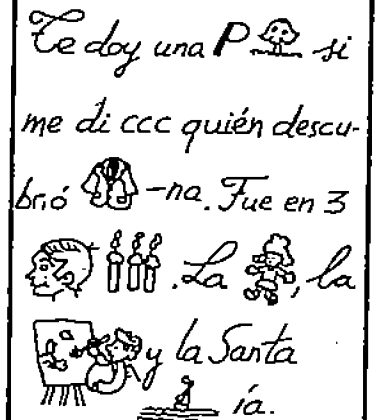 Te doy una P si
me di ccc quién descu-
brió -na. Fue en 3
. La , la
y la Santa
ía.